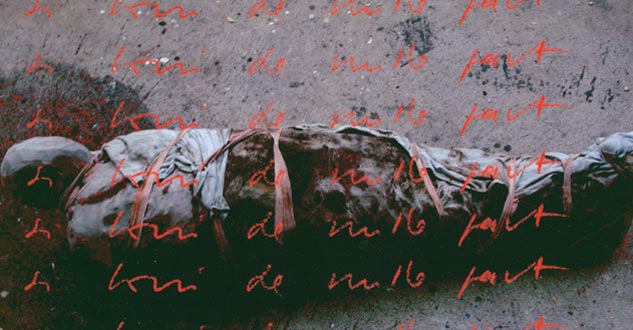 si loin de nulle part
si loin de nulle part
si loin de nulle part
si loin de nulle part
si loin de nulle part
si loin de nulle part